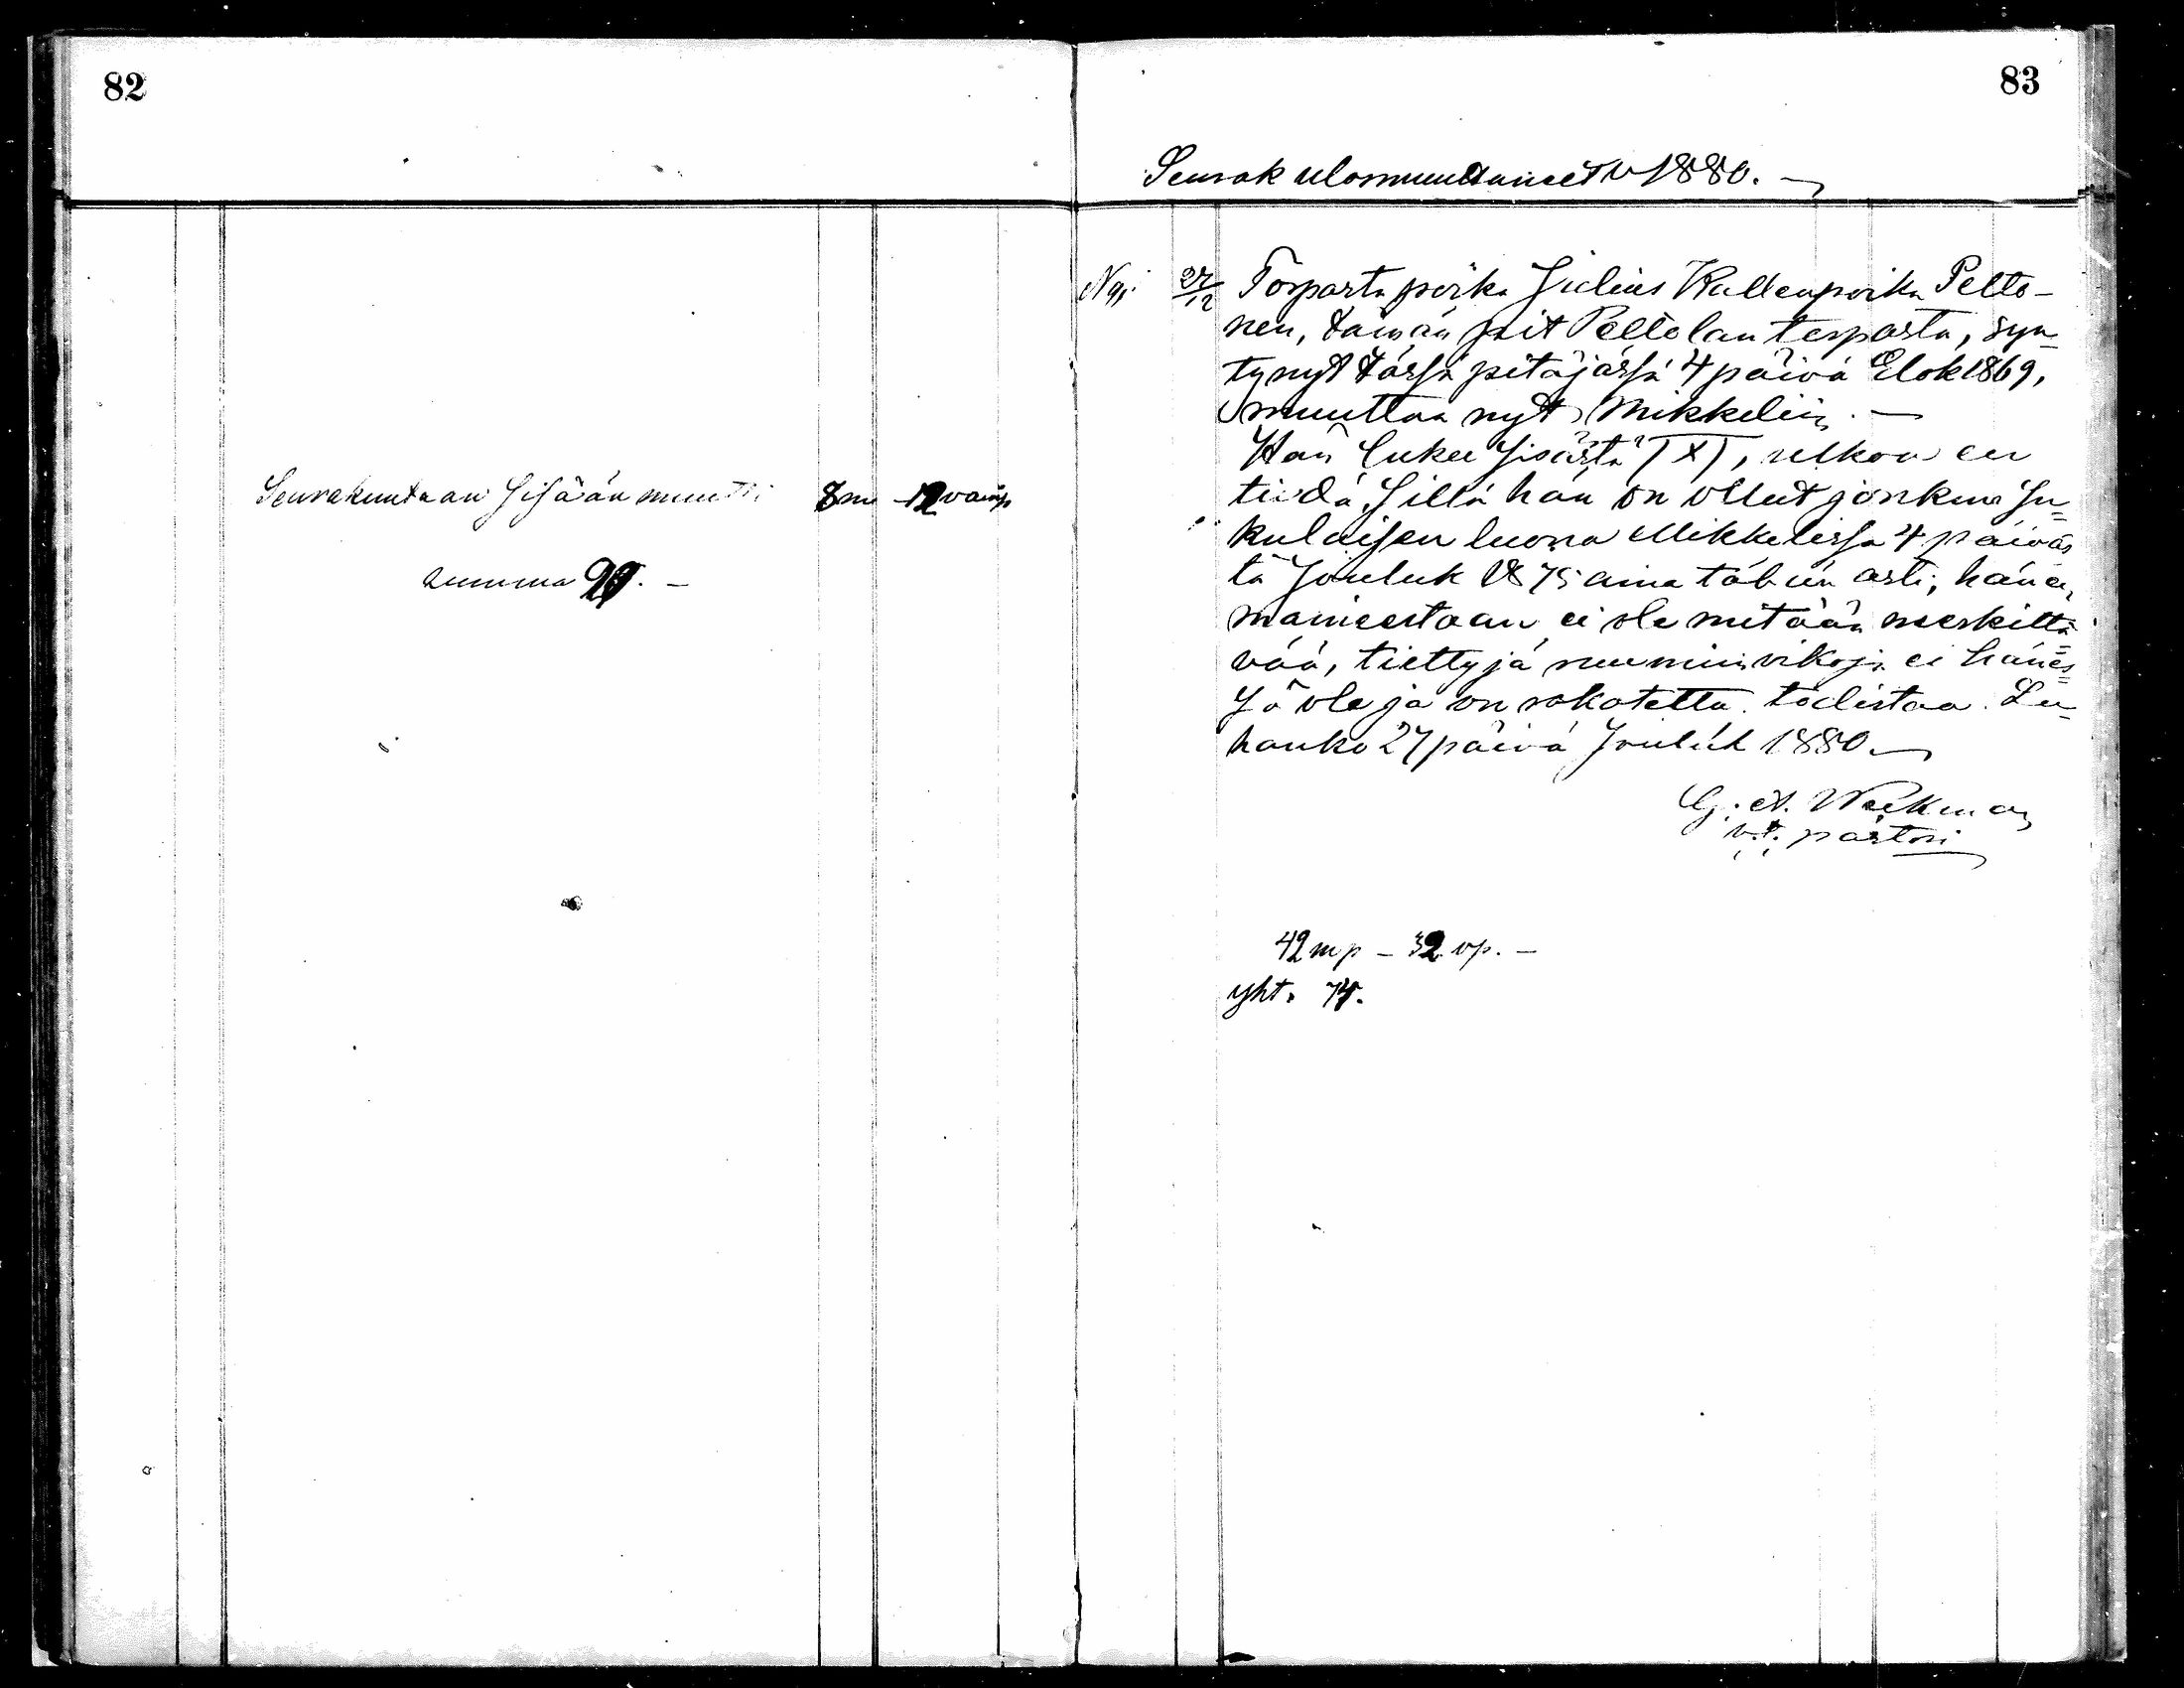 82
Seurakuntaan Sisään muutti 8 m - 12 vaimp
summa 20. -
83
Seurak ulosmuuttaneet v 1880. -
27/12 Torparin poika Julius Kallenpoika Pelto-
nen, tämän pit Peltolan torpasta, syn-
tynyt tässä pitäjässä 4 päivä Elok 1869,
muuttaa nyt Mikkeliin. -
Hän lukee Sisästä, ulkoa en
tiedä, Sillä hän on ollut jonkun Su-
kulaisen luona Mikkelissä 4 päiväs
tä Jouluk 1875 aina tähän asti; hänen
maineestaan ei ole mitään merkittä
vää, tiettyjä ruumiinvikoja ei hänes-
sä ole ja on rokotettu. todistaa. Lu-
hanko 27 päivä Jouluk 1880. -
G. A. Weckman
v.t. pastori
42 mp - 32 vp. -
yht. 74.